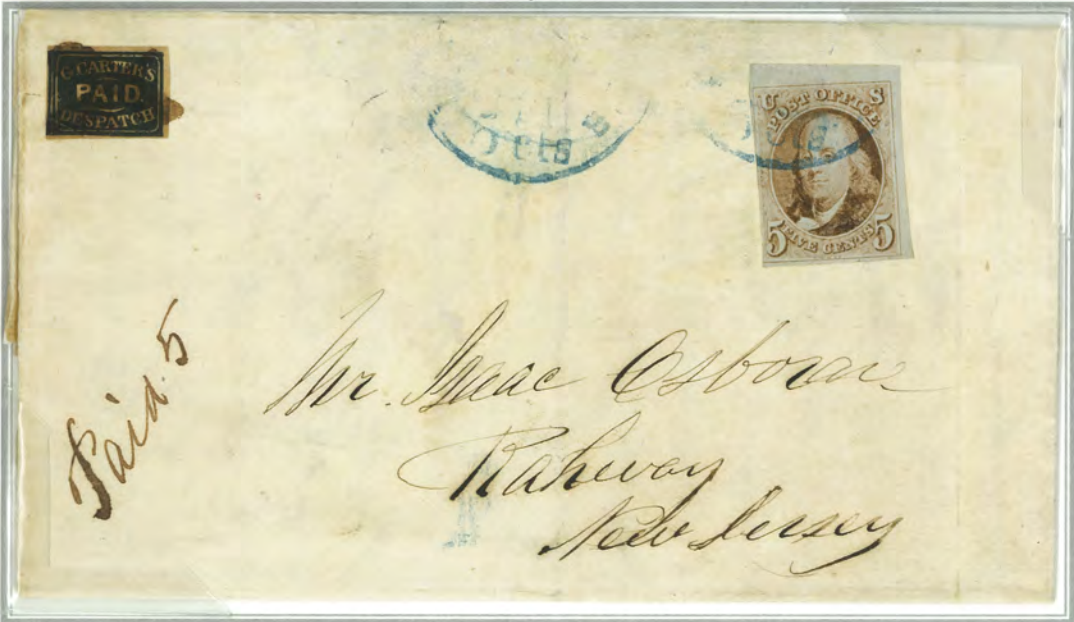 G. CARTER'S
PAID.
DESPATCH
U S
POST OFFICE
5 FIVE CENTS 5
cts
cts
Paid. 5
Mr. Isaac Osborn
Rahway
New Jersey